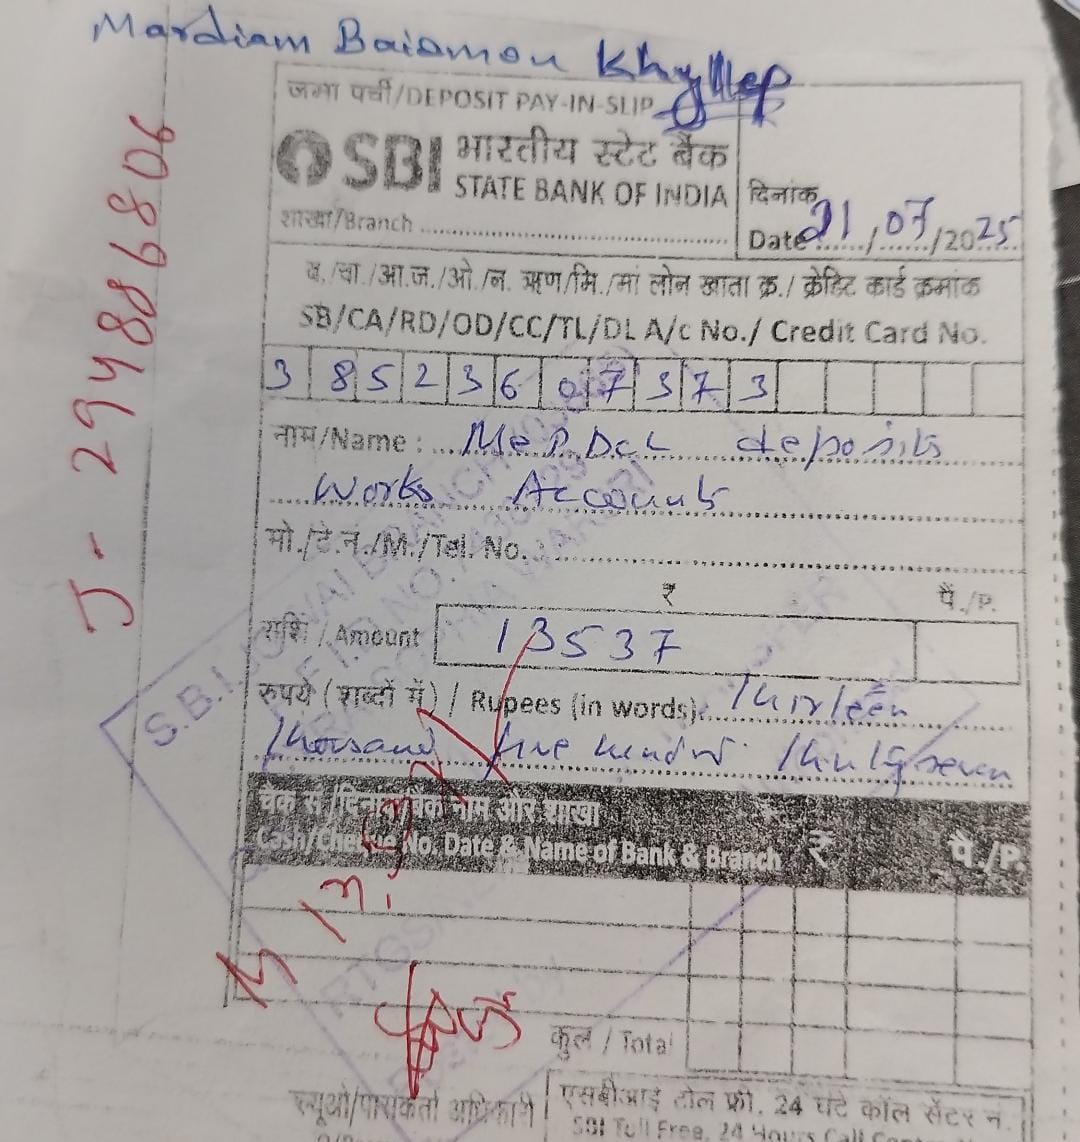 Mardiam Baiamon Khyllep
जमा पर्ची/DEPOSIT PAY-IN-SLIP
SBI भारतीय स्टेट बैंक
STATE BANK OF INDIA
शाखा/Branch
दिनांक
Date 21/07/2025
J - 294886806
ब./चा./आ.ज./ओ./न. ऋण/मि./मां लोन खाता क्र./ क्रेडिट कार्ड क्रमांक
SB/CA/RD/OD/CC/TL/DL A/c No./ Credit Card No.
38523607373
नाम/Name : MePDCL deposits
Works Accounts
मो./टे.नं./M./Tel. No. :
₹ पै./P.
राशि / Amount 13537
रुपये (शब्दों में) / Rupees (in words): Thirteen
Thousand five hundr Thirty seven
चेक सं./दिनांक/बैंक नाम और शाखा ₹ पै./P.
Cash/Cheque No, Date & Name of Bank & Branch
कुल / Total
एसबीआई टोल फ्री. 24 घंटे कॉल सेंटर नं.
SBI Toll Free, 24 Hours Call